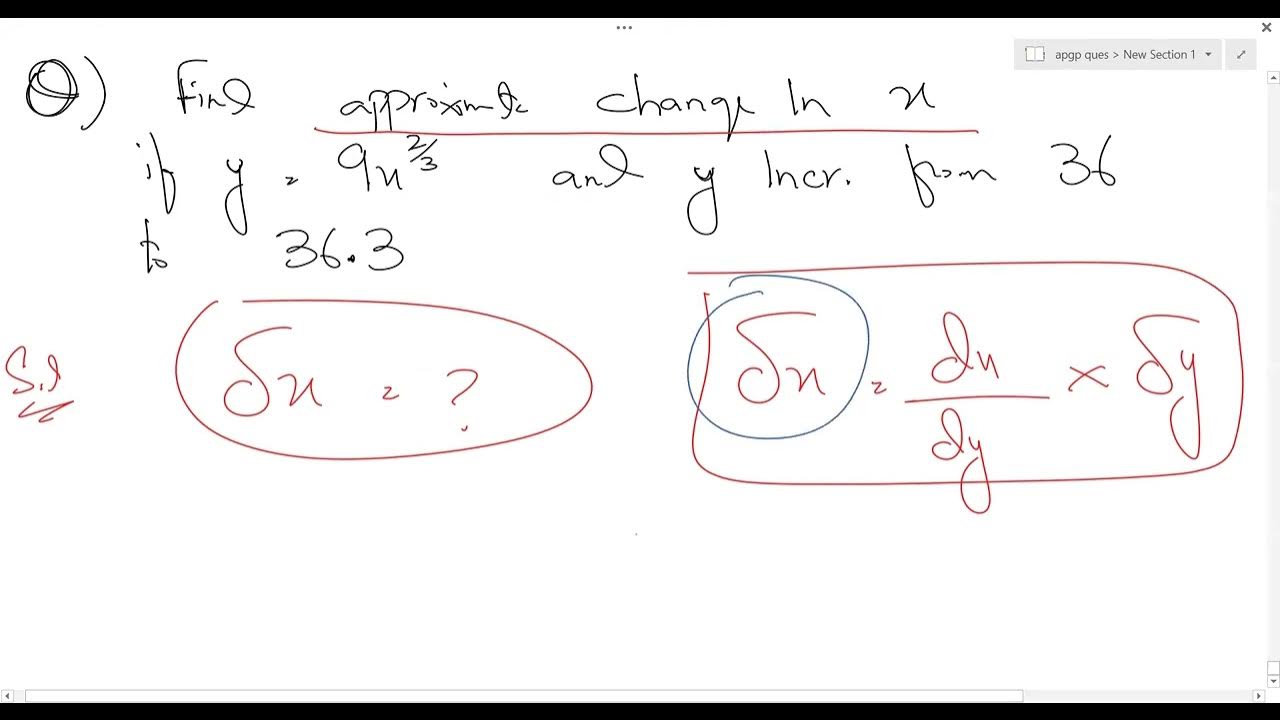 apgp ques > New Section 1
Q) Find approximate change In x
if y = 9x^{2/3} and y Incr. from 36
to 36.3
Sol δx = ? δx = dx/dy × δy